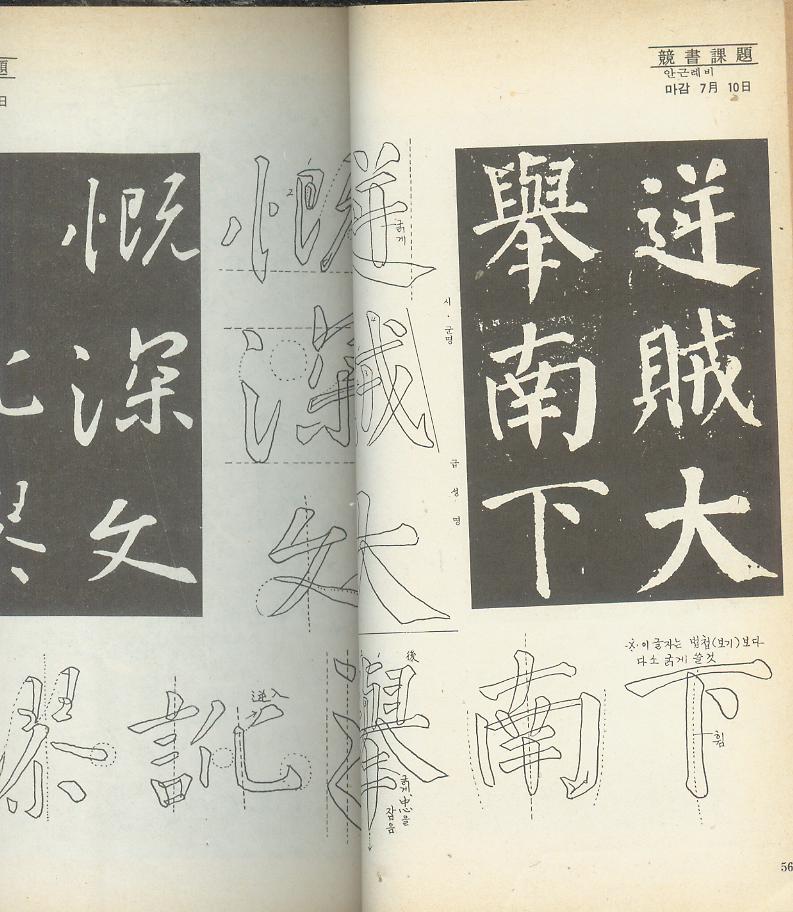 競書課題
안근례비
마감 7月 10日
逆賊大
舉南下
逆
굵게
賊
大
시·군명
급
성명
※이글자는 법첩(보기)보다
다소 굵게 쓸것
下
힘
南
舉
後
굵게 中心을
잡음
題
日
慨深文
慨
深
文
託
逆入